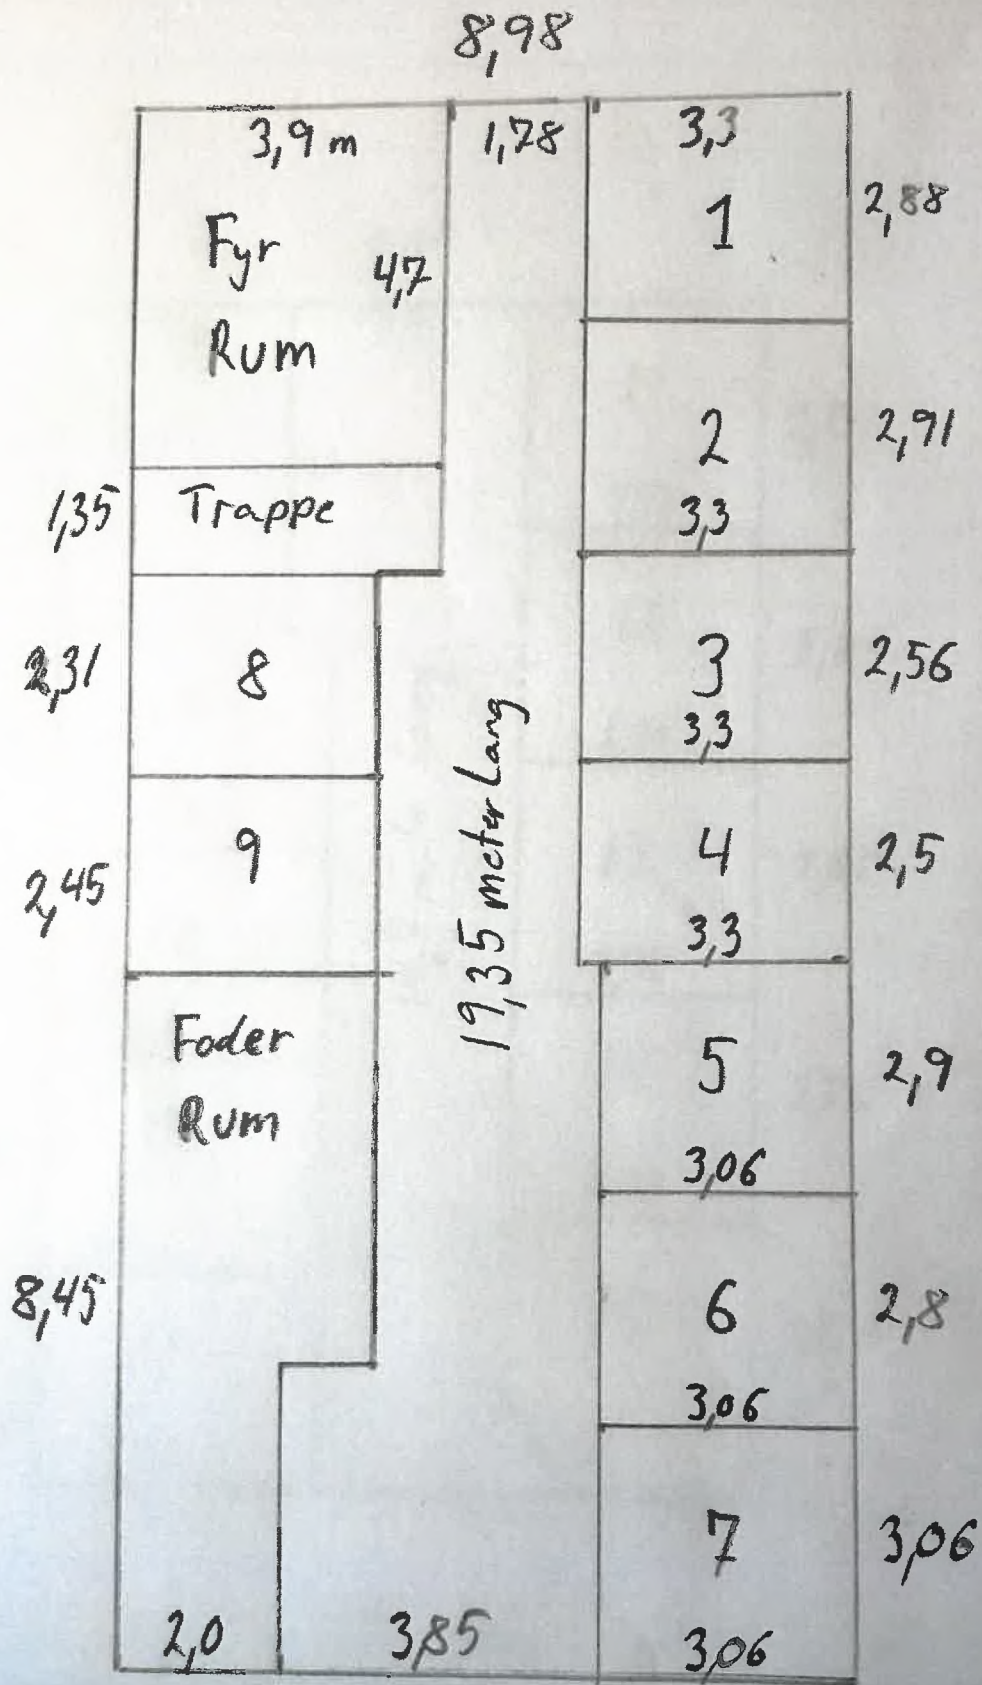 8,98
3,9 m
1,78
3,3
1
2,88
Fyr
Rum
4,7
2
3,3
2,91
1,35
Trappe
2,31
8
3
3,3
2,56
2,45
9
19,35 meter Lang
4
3,3
2,5
Foder
Rum
5
3,06
2,9
8,45
6
3,06
2,8
7
3,06
2,0
3,85
3,06